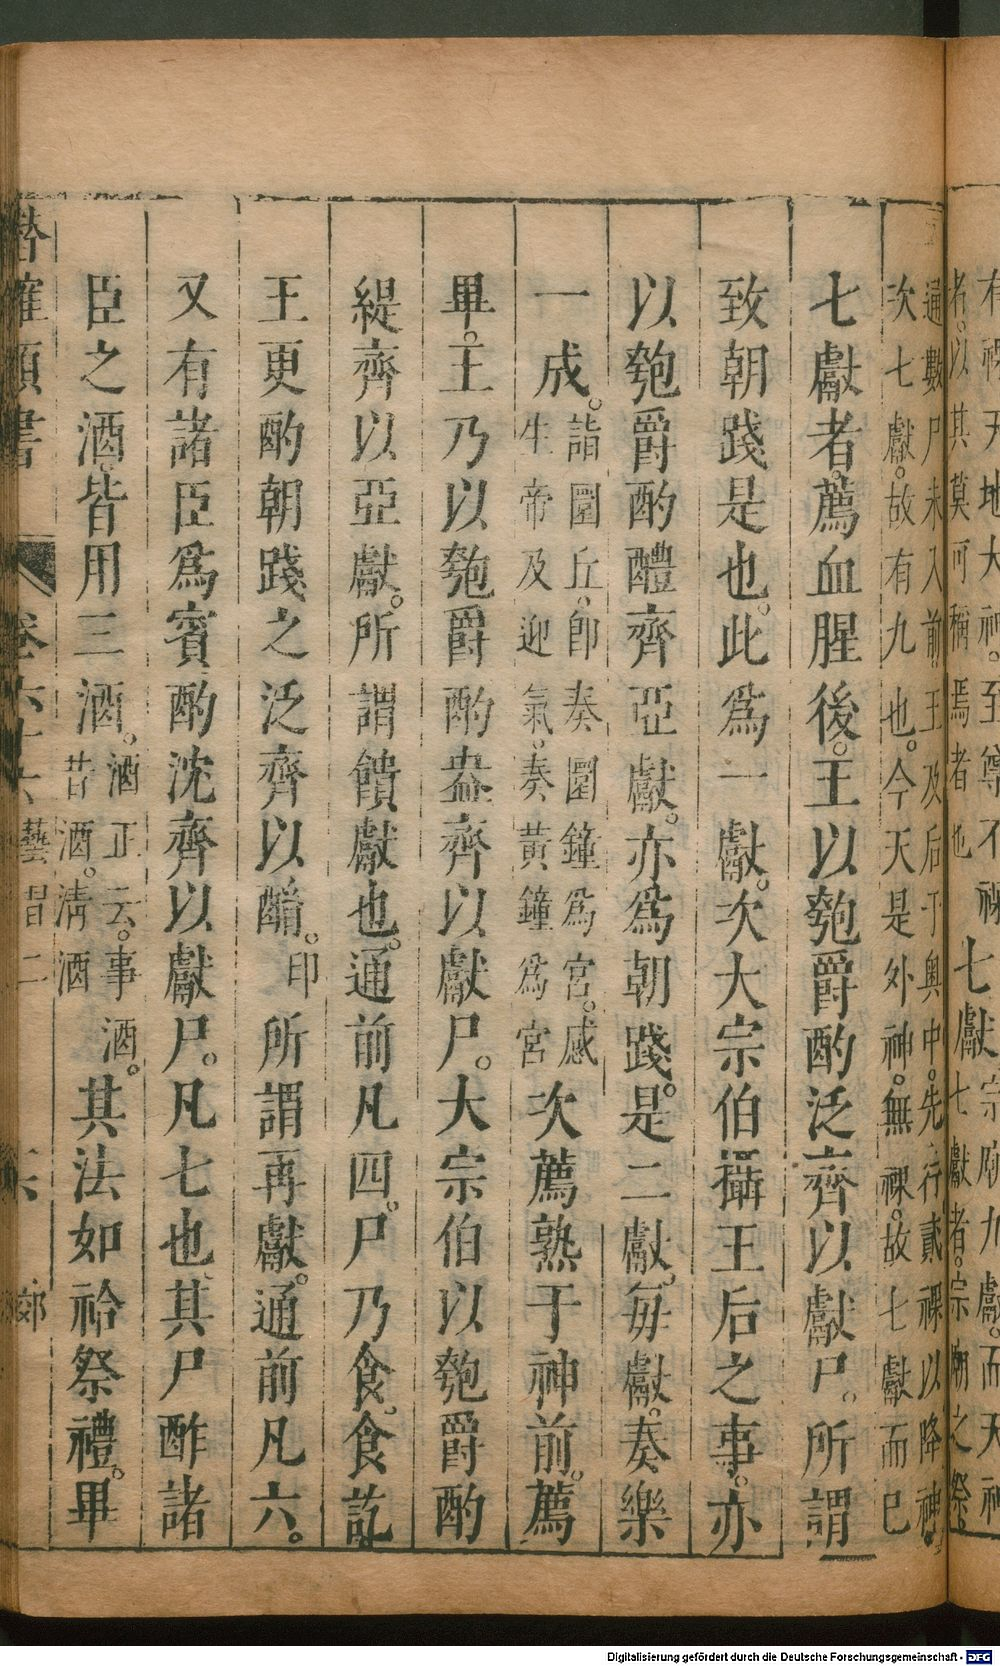 有祼天地大神至尊不祼七獻宗廟九獻而天神
者以其莫可稱焉者也七獻者宗廟之祭
遍數尸未入前王及后于奧中先行貳祼以降神
次七獻故有九也今天是外神無祼故七獻而已
七獻者薦血腥後王以匏爵酌泛齊以獻尸所謂
致朝踐是也此爲一獻次大宗伯攝王后之事亦
以匏爵酌醴齊亞獻亦爲朝踐是二獻每獻奏樂
一成
詣圜丘卽奏圜鐘爲宮感
生帝及迎氣奏黃鐘爲宮
次薦熟于神前薦
畢王乃以匏爵酌盎齊以獻尸大宗伯以匏爵酌
緹齊以亞獻所謂饋獻也通前凡四尸乃食食訖
王更酌朝踐之泛齊以酳印所謂再獻通前凡六
又有諸臣爲賓酌沈齊以獻尸凡七也其尸酢諸
臣之酒皆用三酒
酒正云事酒
昔酒淸酒
其法如祫祭禮畢
類書 卷六十六 藝習二 六 郊
Digitalisierung gefördert durch die Deutsche Forschungsgemeinschaft - DFG